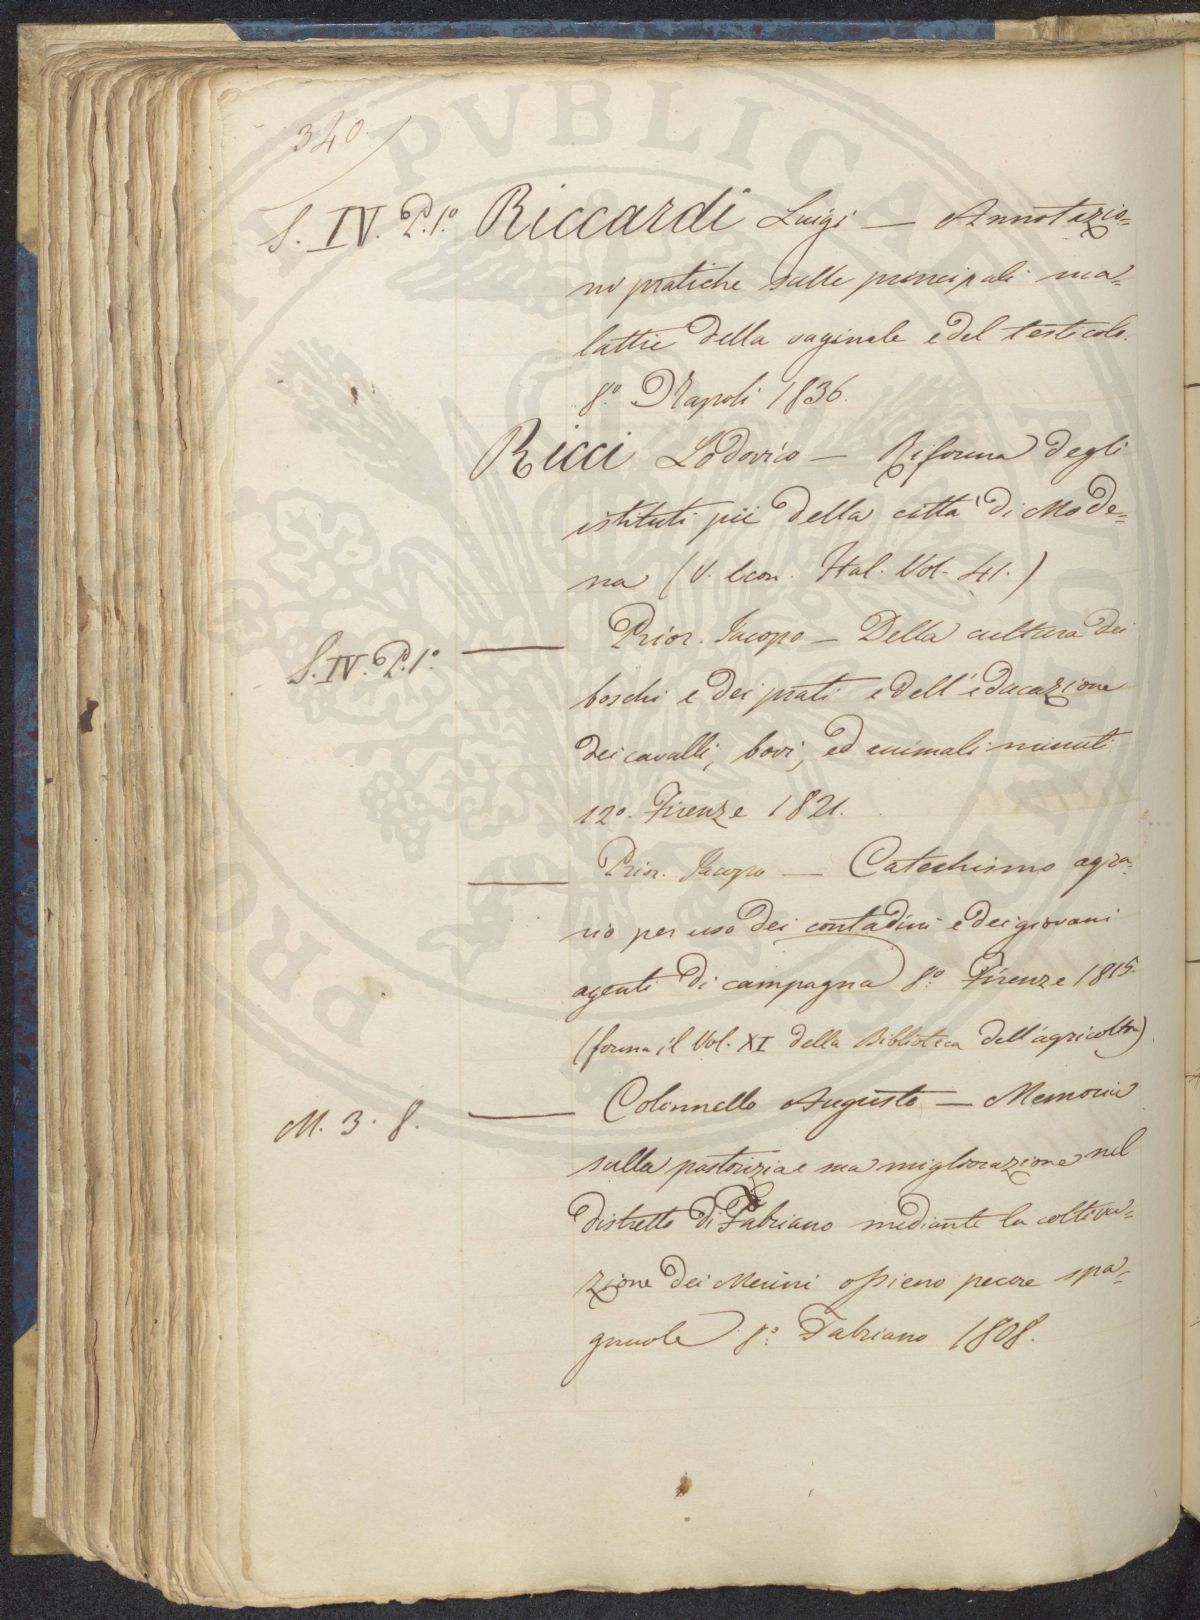 340.
S. IV. P. 1.º Riccardi Luigi — Annotazio=
ni pratiche sulle principali ma=
lattie della vaginale e del testicolo.
8.º Napoli 1836.
Ricci Lodovico — Riforma degli
istituti pii della città di Mode=
na (V. Econ. Ital. Vol. 41.)
S. IV. P. 1.º — Prior. Jacopo — Della cultura dei
boschi e dei prati e dell'educazione
dei cavalli, bovi, ed animali minuti
12.º Firenze 1821.
— Prior. Jacopo — Catechismo agra=
rio per uso dei contadini e dei giovani
agenti di campagna 8.º Firenze 1815.
(forma il Vol. XI della Biblioteca dell'agricoltore)
M. 3. 8. — Colonnello Augusto — Memoria
sulla pastorizia e sua migliorazione nel
distretto di Fabriano mediante la coltiva=
zione dei Merini ossieno pecore spa=
gnuole 8.º Fabriano 1808.